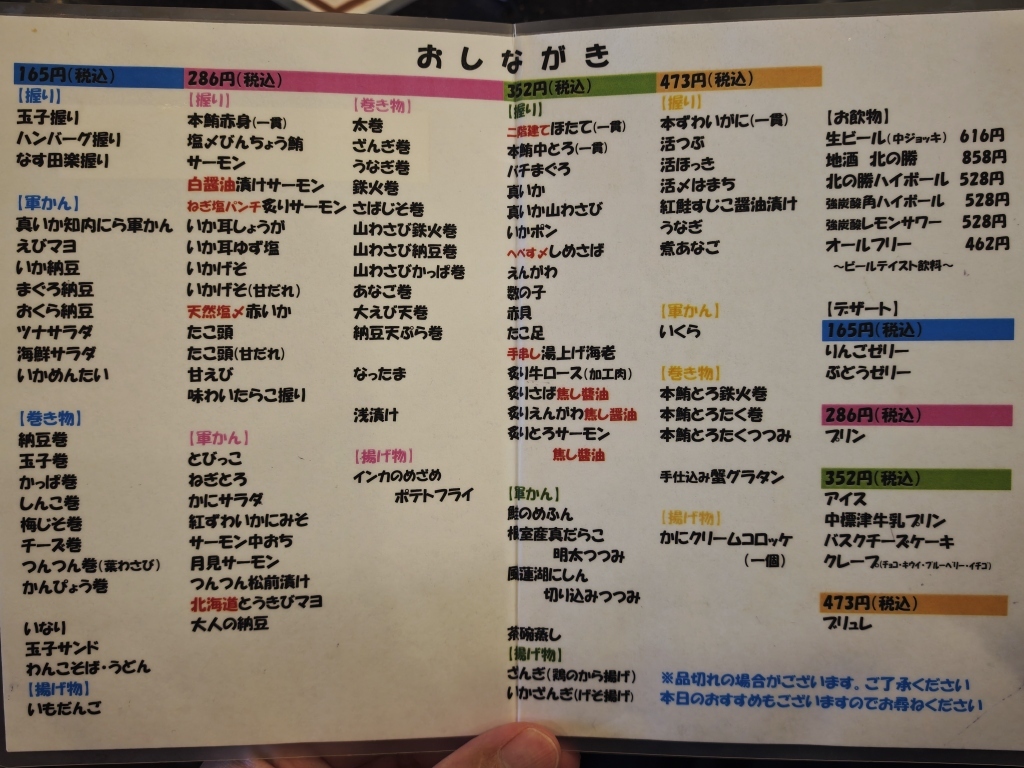 おしながき
165円(税込)
【握り】
玉子握り
ハンバーグ握り
なす田楽握り
【軍かん】
真いか知内にら軍かん
えびマヨ
いか納豆
まぐろ納豆
おくら納豆
ツナサラダ
海鮮サラダ
いかめんたい
【巻き物】
納豆巻
玉子巻
かっぱ巻
しんこ巻
梅じそ巻
チーズ巻
つんつん巻(葉わさび)
かんぴょう巻
いなり
玉子サンド
わんこそば・うどん
【揚げ物】
いもだんご
286円(税込)
【握り】
本鮪赤身(一貫)
塩〆びんちょう鮪
サーモン
白醤油漬けサーモン
ねぎ塩パンチ炙りサーモン
いか耳しょうが
いか耳ゆず塩
いかげそ
いかげそ(甘だれ)
天然塩〆赤いか
たこ頭
たこ頭(甘だれ)
甘えび
味わいたらこ握り
【軍かん】
とびっこ
ねぎとろ
かにサラダ
紅ずわいかにみそ
サーモン中おち
月見サーモン
つんつん松前漬け
北海道とうきびマヨ
大人の納豆
【巻き物】
太巻
ざんぎ巻
うなぎ巻
鉄火巻
さばしそ巻
山わさび鉄火巻
山わさび納豆巻
山わさびかっぱ巻
あなご巻
大えび天巻
納豆天ぷら巻
なったま
浅漬け
【揚げ物】
インカのめざめ
ポテトフライ
352円(税込)
【握り】
二階建てほたて(一貫)
本鮪中とろ(一貫)
バチまぐろ
真いか
真いか山わさび
いかポン
へべす〆しめさば
えんがわ
数の子
赤貝
たこ足
手串し湯上げ海老
炙り牛ロース(加工肉)
炙りさば焦し醤油
炙りえんがわ焦し醤油
炙りとろサーモン
焦し醤油
【軍かん】
鮭のめふん
根室産真だらこ
明太つつみ
風蓮湖にしん
切り込みつつみ
茶碗蒸し
【揚げ物】
ざんぎ(鶏のから揚げ)
いかざんぎ(げそ揚げ)
473円(税込)
【握り】
本ずわいがに(一貫)
活つぶ
活ほっき
活〆はまち
紅鮭すじこ醤油漬け
うなぎ
煮あなご
【軍かん】
いくら
【巻き物】
本鮪とろ鉄火巻
本鮪とろたく巻
本鮪とろたくつつみ
手仕込み蟹グラタン
【揚げ物】
かにクリームコロッケ
(一個)
【お飲物】
生ビール(中ジョッキ) 616円
地酒 北の勝 858円
北の勝ハイボール 528円
強炭酸角ハイボール 528円
強炭酸レモンサワー 528円
オールフリー 462円
～ビールテイスト飲料～
【デザート】
165円(税込)
りんごゼリー
ぶどうゼリー
286円(税込)
プリン
352円(税込)
アイス
中標津牛乳プリン
バスクチーズケーキ
クレープ(チョコ・キウイ・ブルーベリー・イチゴ)
473円(税込)
ブリュレ
※品切れの場合がございます。ご了承ください
本日のおすすめもございますのでお尋ねください